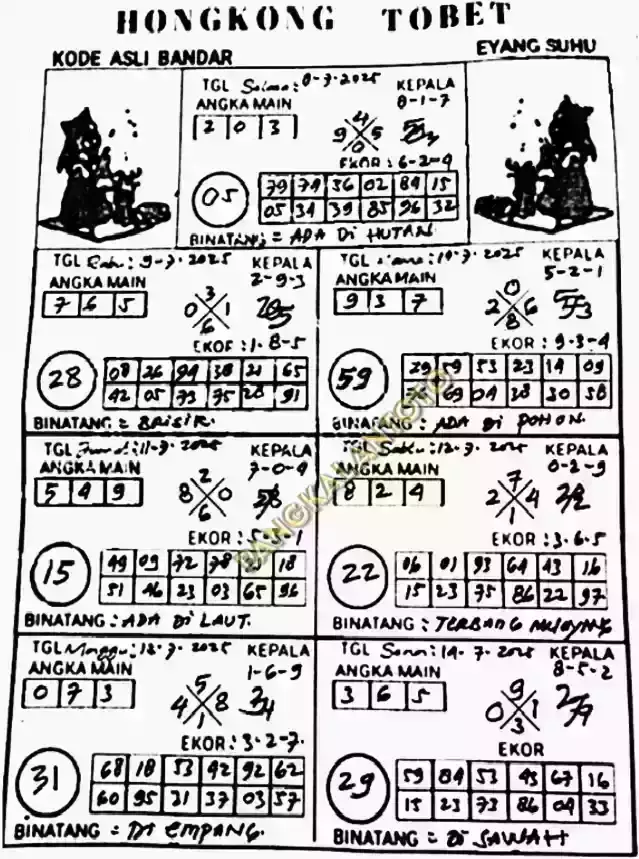 HONGKONG TOBET
KODE ASLI BANDAR
EYANG SUHU
TGL Selasa: 8-7-2025
KEPALA
ANGKA MAIN
8-1-7
2 0 3
4
9 5
0
EKOR : 6-2-4
05
79 74 36 02 84 15
05 34 39 85 96 32
BINATANG = ADA DI HUTAN
TGL Rabu: 9-7-2025
KEPALA
ANGKA MAIN
2-9-3
7 6 5
3
0 1
6
EKOR : 1-8-5
28
08 26 94 38 21 65
42 05 73 75 28 91
BINATANG = BRISIK.
TGL : 10-7-2025
KEPALA
ANGKA MAIN
5-2-1
9 3 7
0
2 6
8
EKOR : 9-3-4
59
29 59 53 23 14 09
69 04 38 30 58
BINATANG = ADA DI POHON.
TGL Jumat: 11-7-2025
KEPALA
ANGKA MAIN
7-0-4
5 4 9
2
8 0
6
58
EKOR : 5-3-1
15
49 09 72 78 18
51 46 23 03 65 96
BINATANG : ADA DI LAUT.
TGL Sabtu: 12-7-2025
KEPALA
ANGKA MAIN
0-2-9
8 2 4
7
2 4
1
EKOR : 3-6-5
22
06 01 93 64 43 16
15 23 75 86 22 97
BINATANG : TERBANG
TGL Minggu: 13-7-2025
KEPALA
ANGKA MAIN
1-6-9
0 7 3
5
4 8
1
EKOR : 3-2-7.
31
68 18 53 42 92 62
60 95 31 37 03 57
BINATANG = DI EMPANG.
TGL Senin: 14-7-2025
KEPALA
ANGKA MAIN
8-5-2
3 6 5
9
0 1
3
EKOR
29
59 84 53 45 67 16
15 23 73 86 04 33
BINATANG = DI SAWAH
PANGKALANTOTO